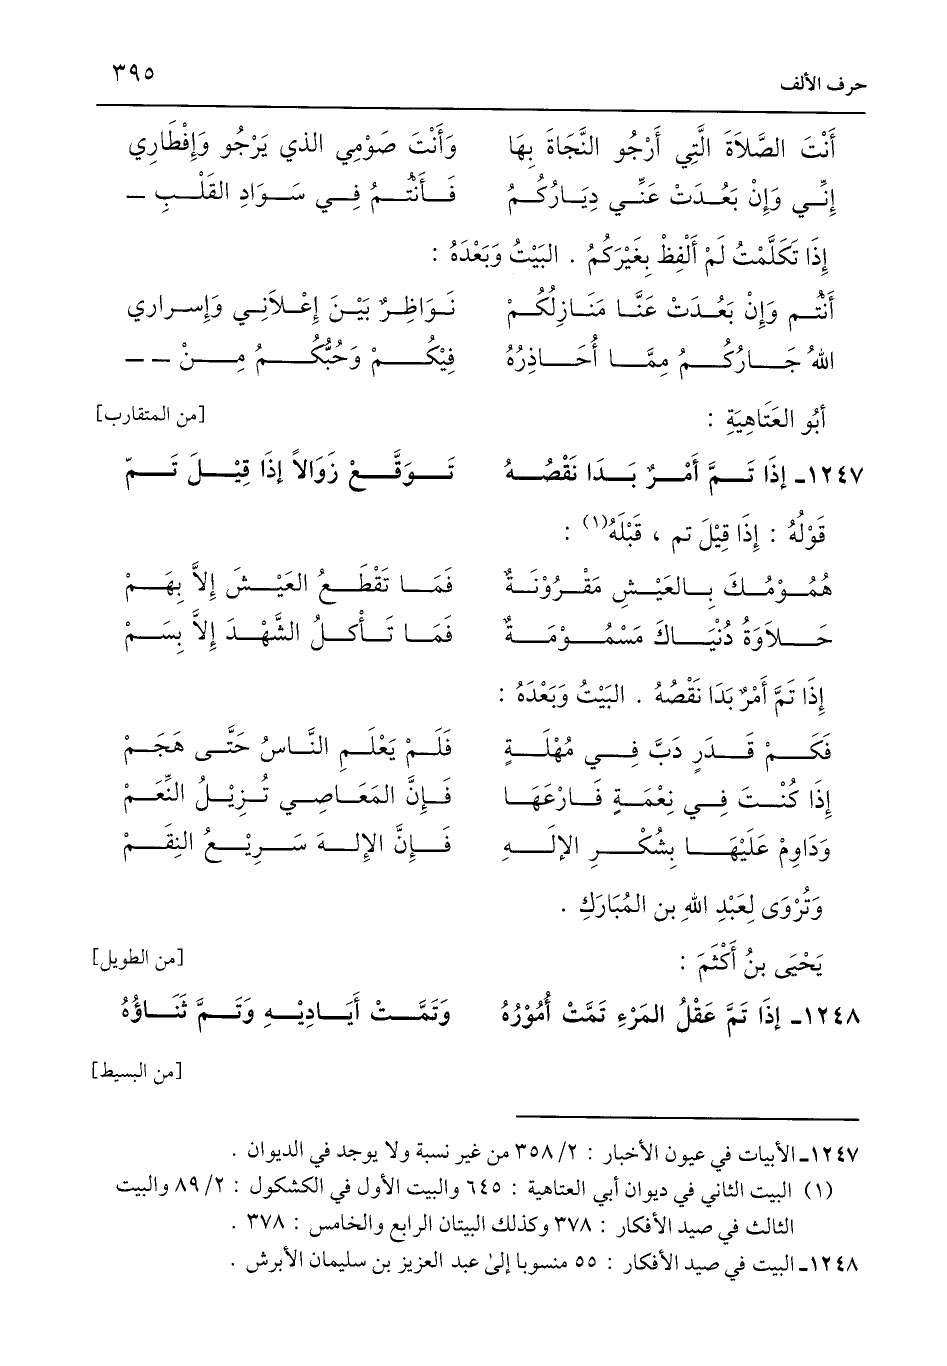 حرف الألف ٣٩٥
أَنْتَ الصَّلاَةَ الَّتِي أَرْجُو النَّجَاةَ بِهَا وَأَنْتَ صَوْمِي الذي يَرْجُو وَإِفْطَارِي
إِنِّي وَإِنْ بَعُدَتْ عَنِّي دِيَارُكُمُ فَأَنْتُمُ فِي سَوَادِ القَلْبِ ــ
إِذَا تَكَلَّمْتُ لَمْ أَلْفِظْ بِغَيْرَكُمُ . البَيْتُ وَبَعْدَهُ :
أَنْتُم وَإِنْ بَعُدَتْ عَنَّا مَنَازِلُكُمْ نَوَاظِرٌ بَيْنَ إِعْلاَنِي وَإِسراري
اللهُ جَارُكُمُ مِمَّا أُحَاذِرُهُ فِيْكُمْ وَحُبُّكُمُ مِنْ ــ ــ
أَبُو العَتَاهِيَةِ : [من المتقارب]
١٢٤٧ـ إِذَا تَمَّ أَمْرٌ بَدَا نَقْصُهُ تَوَقَّعْ زَوَالاً إِذَا قِيْلَ تَمّ
قَوْلُهُ : إِذَا قِيْلَ تم ، قَبْلَهُ(١) :
هُمُوْمُكَ بِالعَيْشِ مَقْرُوْنَةٌ فَمَا تَقْطَعُ العَيْشَ إِلاَّ بِهَمْ
حَلاَوَةُ دُنْيَاكَ مَسْمُوْمَةٌ فَمَا تَأْكلُ الشَّهْدَ إِلاَّ بِسَمْ
إِذَا تَمَّ أَمْرٌ بَدَا نَقْصُهُ . البَيْتُ وَبَعْدَهُ :
فَكَمْ قَدَرٍ دَبَّ فِي مُهْلَةٍ فَلَمْ يَعْلَمِ النَّاسُ حَتَّى هَجَمْ
إِذَا كُنْتَ فِي نِعْمَةٍ فَارْعَهَا فَإِنَّ المَعَاصِي تُزِيْلُ النِّعَمْ
وَدَاوِمْ عَلَيْهَا بِشُكْرِ الإلَهِ فَإِنَّ الإِلهَ سَرِيْعُ النِقَمْ
وَتُرْوَى لِعَبْدِ اللهِ بن المُبَارَكِ .
يَحْيَى بنُ أَكْثَمَ : [من الطويل]
١٢٤٨ـ إِذَا تَمَّ عَقْلُ المَرْءِ تَمَّتْ أُمُوْرُهُ وَتَمَّتْ أَيَادِيْهِ وَتَمَّ ثَنَاؤُهُ
[من البسيط]
١٢٤٧ـ الأبيات في عيون الأخبار : ٣٥٨/٢ من غير نسبة ولا يوجد في الديوان .
(١) البيت الثاني في ديوان أبي العتاهية : ٦٤٥ والبيت الأول في الكشكول : ٨٩/٢ والبيت
الثالث في صيد الأفكار : ٣٧٨ وكذلك البيتان الرابع والخامس : ٣٧٨ .
١٢٤٨ـ البيت في صيد الأفكار : ٥٥ منسوبا إلىٰ عبد العزيز بن سليمان الأبرش .